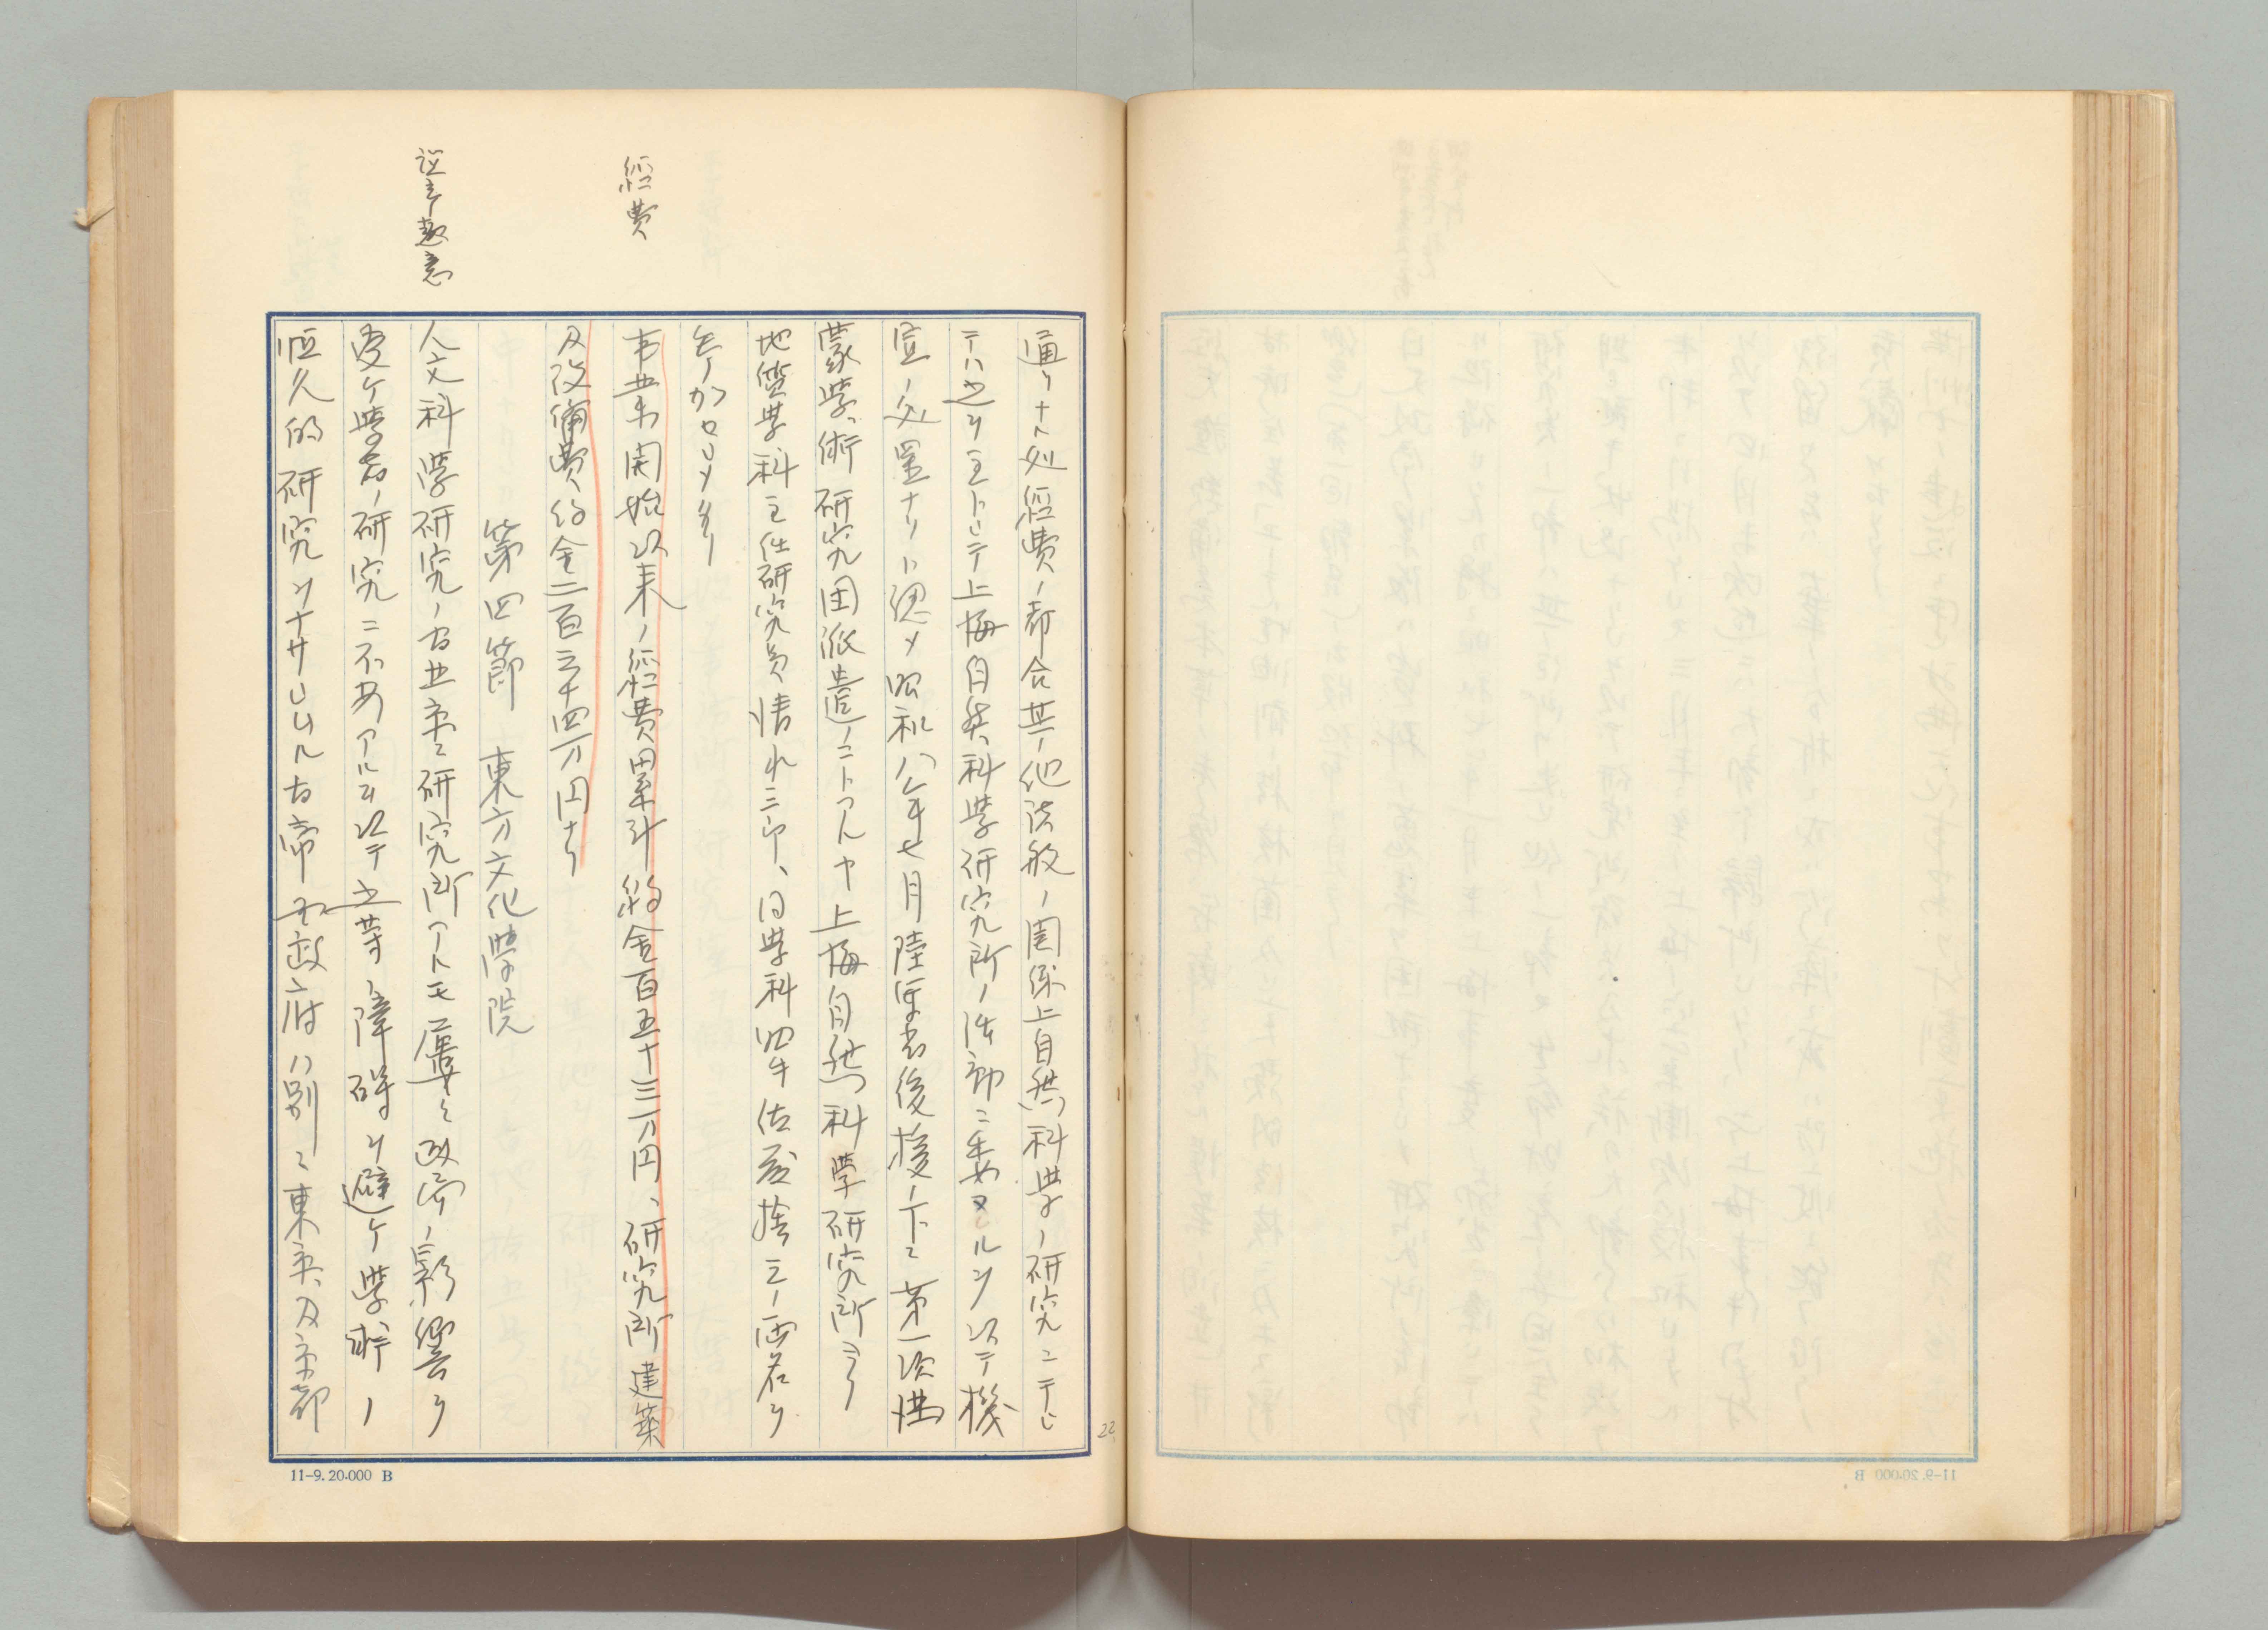 通リナル処経費ノ都合其ノ他諸般ノ関係上自然科学ノ研究ニテシ
テハ之ヲ主トシテ上海自然科学研究所ノ活動ニ委スルヲ以テ機
宜ノ処置ナリト認メ昭和八年七月陸軍省後援ノ下ニ第一次満
蒙学術研究団派遣ノコトアルヤ上海自然科学研究所ヨリ
地質学科主任研究員清水三郎、同学科四年佐藤捨三ノ両名ヲ
参加セシメタリ
経費
事業開始以来ノ経費累計約金百五十三万円、研究所建築
及設備費約金二百三十四万円ナリ
第四節 東方文化学院
設立趣意
人文科学研究ノ為北京ニ研究所アルモ屡々政潮ノ影響ヲ
受ケ学者ノ研究ニ不安アルヲ以テ之等ノ障碍ヲ避ケ学術ノ
恒久的研究ヲナサシムル為帝国政府ハ別ニ東京及京都
22
11-9. 20.000 B